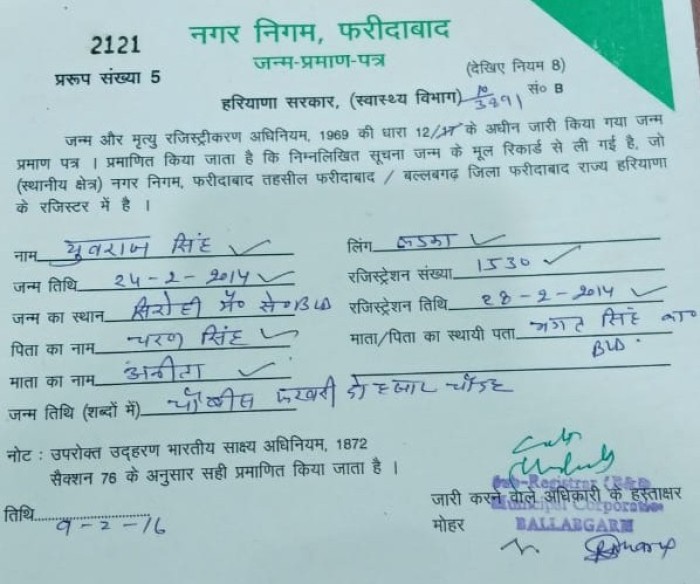 2121
नगर निगम, फरीदाबाद
जन्म-प्रमाण-पत्र
प्ररूप संख्या 5
(देखिए नियम 8)
हरियाणा सरकार, (स्वास्थ्य विभाग) 10/3891 सं० B
जन्म और मृत्यु रजिस्ट्रीकरण अधिनियम, 1969 की धारा 12/17 के अधीन जारी किया गया जन्म
प्रमाण पत्र । प्रमाणित किया जाता है कि निम्नलिखित सूचना जन्म के मूल रिकार्ड से ली गई है, जो
(स्थानीय क्षेत्र) नगर निगम, फरीदाबाद तहसील फरीदाबाद / बल्लबगढ़ जिला फरीदाबाद राज्य हरियाणा
के रजिस्टर में है ।
नाम युवराज सिंह
लिंग लडका
जन्म तिथि 24-2-2014
रजिस्ट्रेशन संख्या 1530
जन्म का स्थान सिरोही
रजिस्ट्रेशन तिथि 28-2-2014
पिता का नाम चरण सिंह
माता/पिता का स्थायी पता भगत सिंह का०
BLD.
माता का नाम अनीता
जन्म तिथि (शब्दों में) चौबीस फरवरी दो हजार चौदह
नोट : उपरोक्त उद्हरण भारतीय साक्ष्य अधिनियम, 1872
सैक्शन 76 के अनुसार सही प्रमाणित किया जाता है ।
Sub-Registrar (B&D)
Municipal Corporation
जारी करने वाले अधिकारी के हस्ताक्षर
मोहर BALLABGARH
तिथि 9-2-16